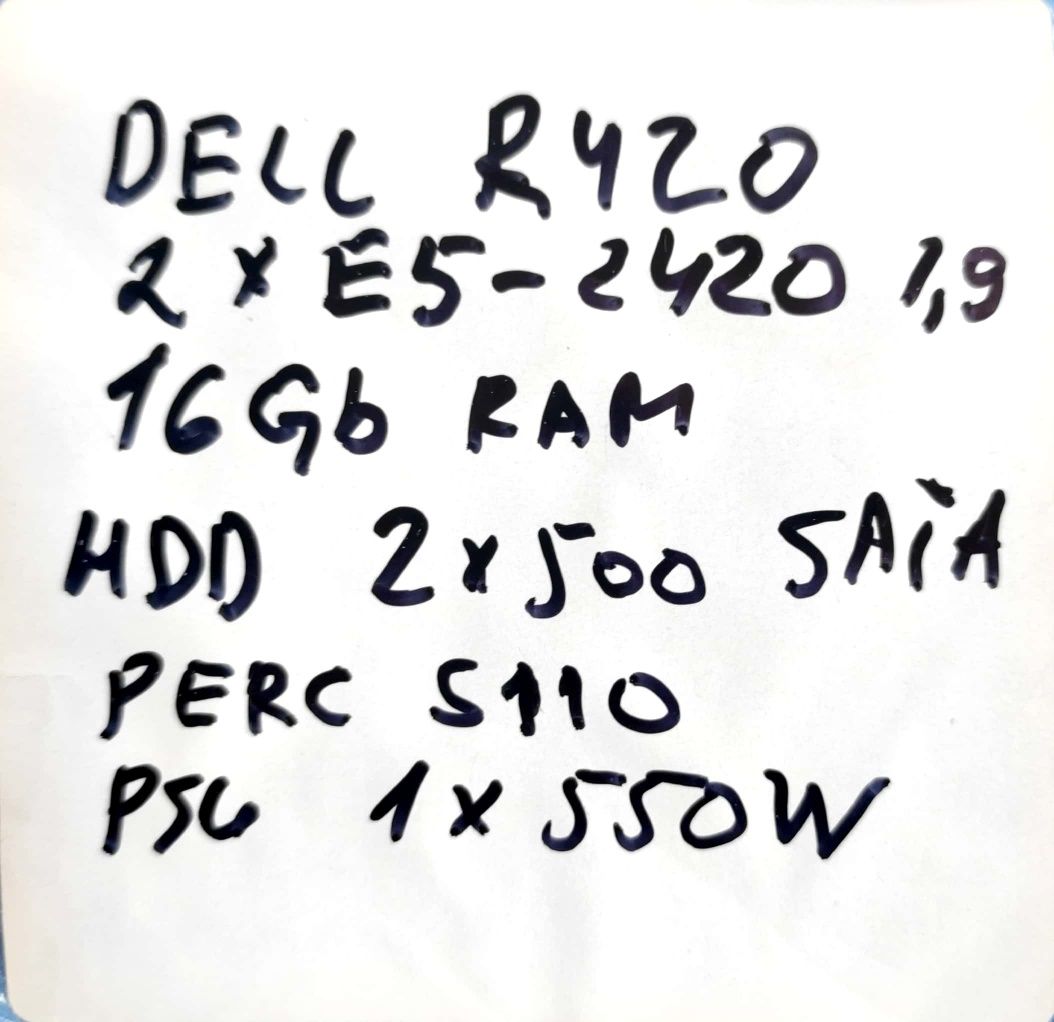 DELL R420
2 x E5-2420 1,9
16Gb RAM
HDD 2x500 SATA
PERC S110
PSU 1x 550W